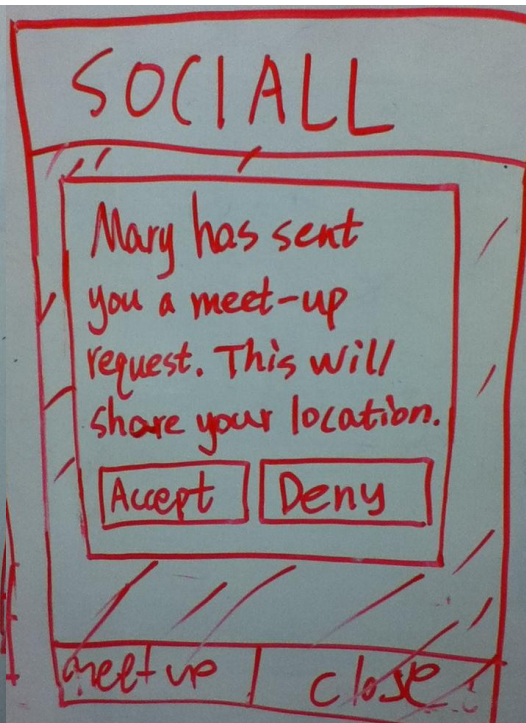 SOCIALL
Mary has sent
you a meet-up
request. This will
share your location.
Accept Deny
meet up close